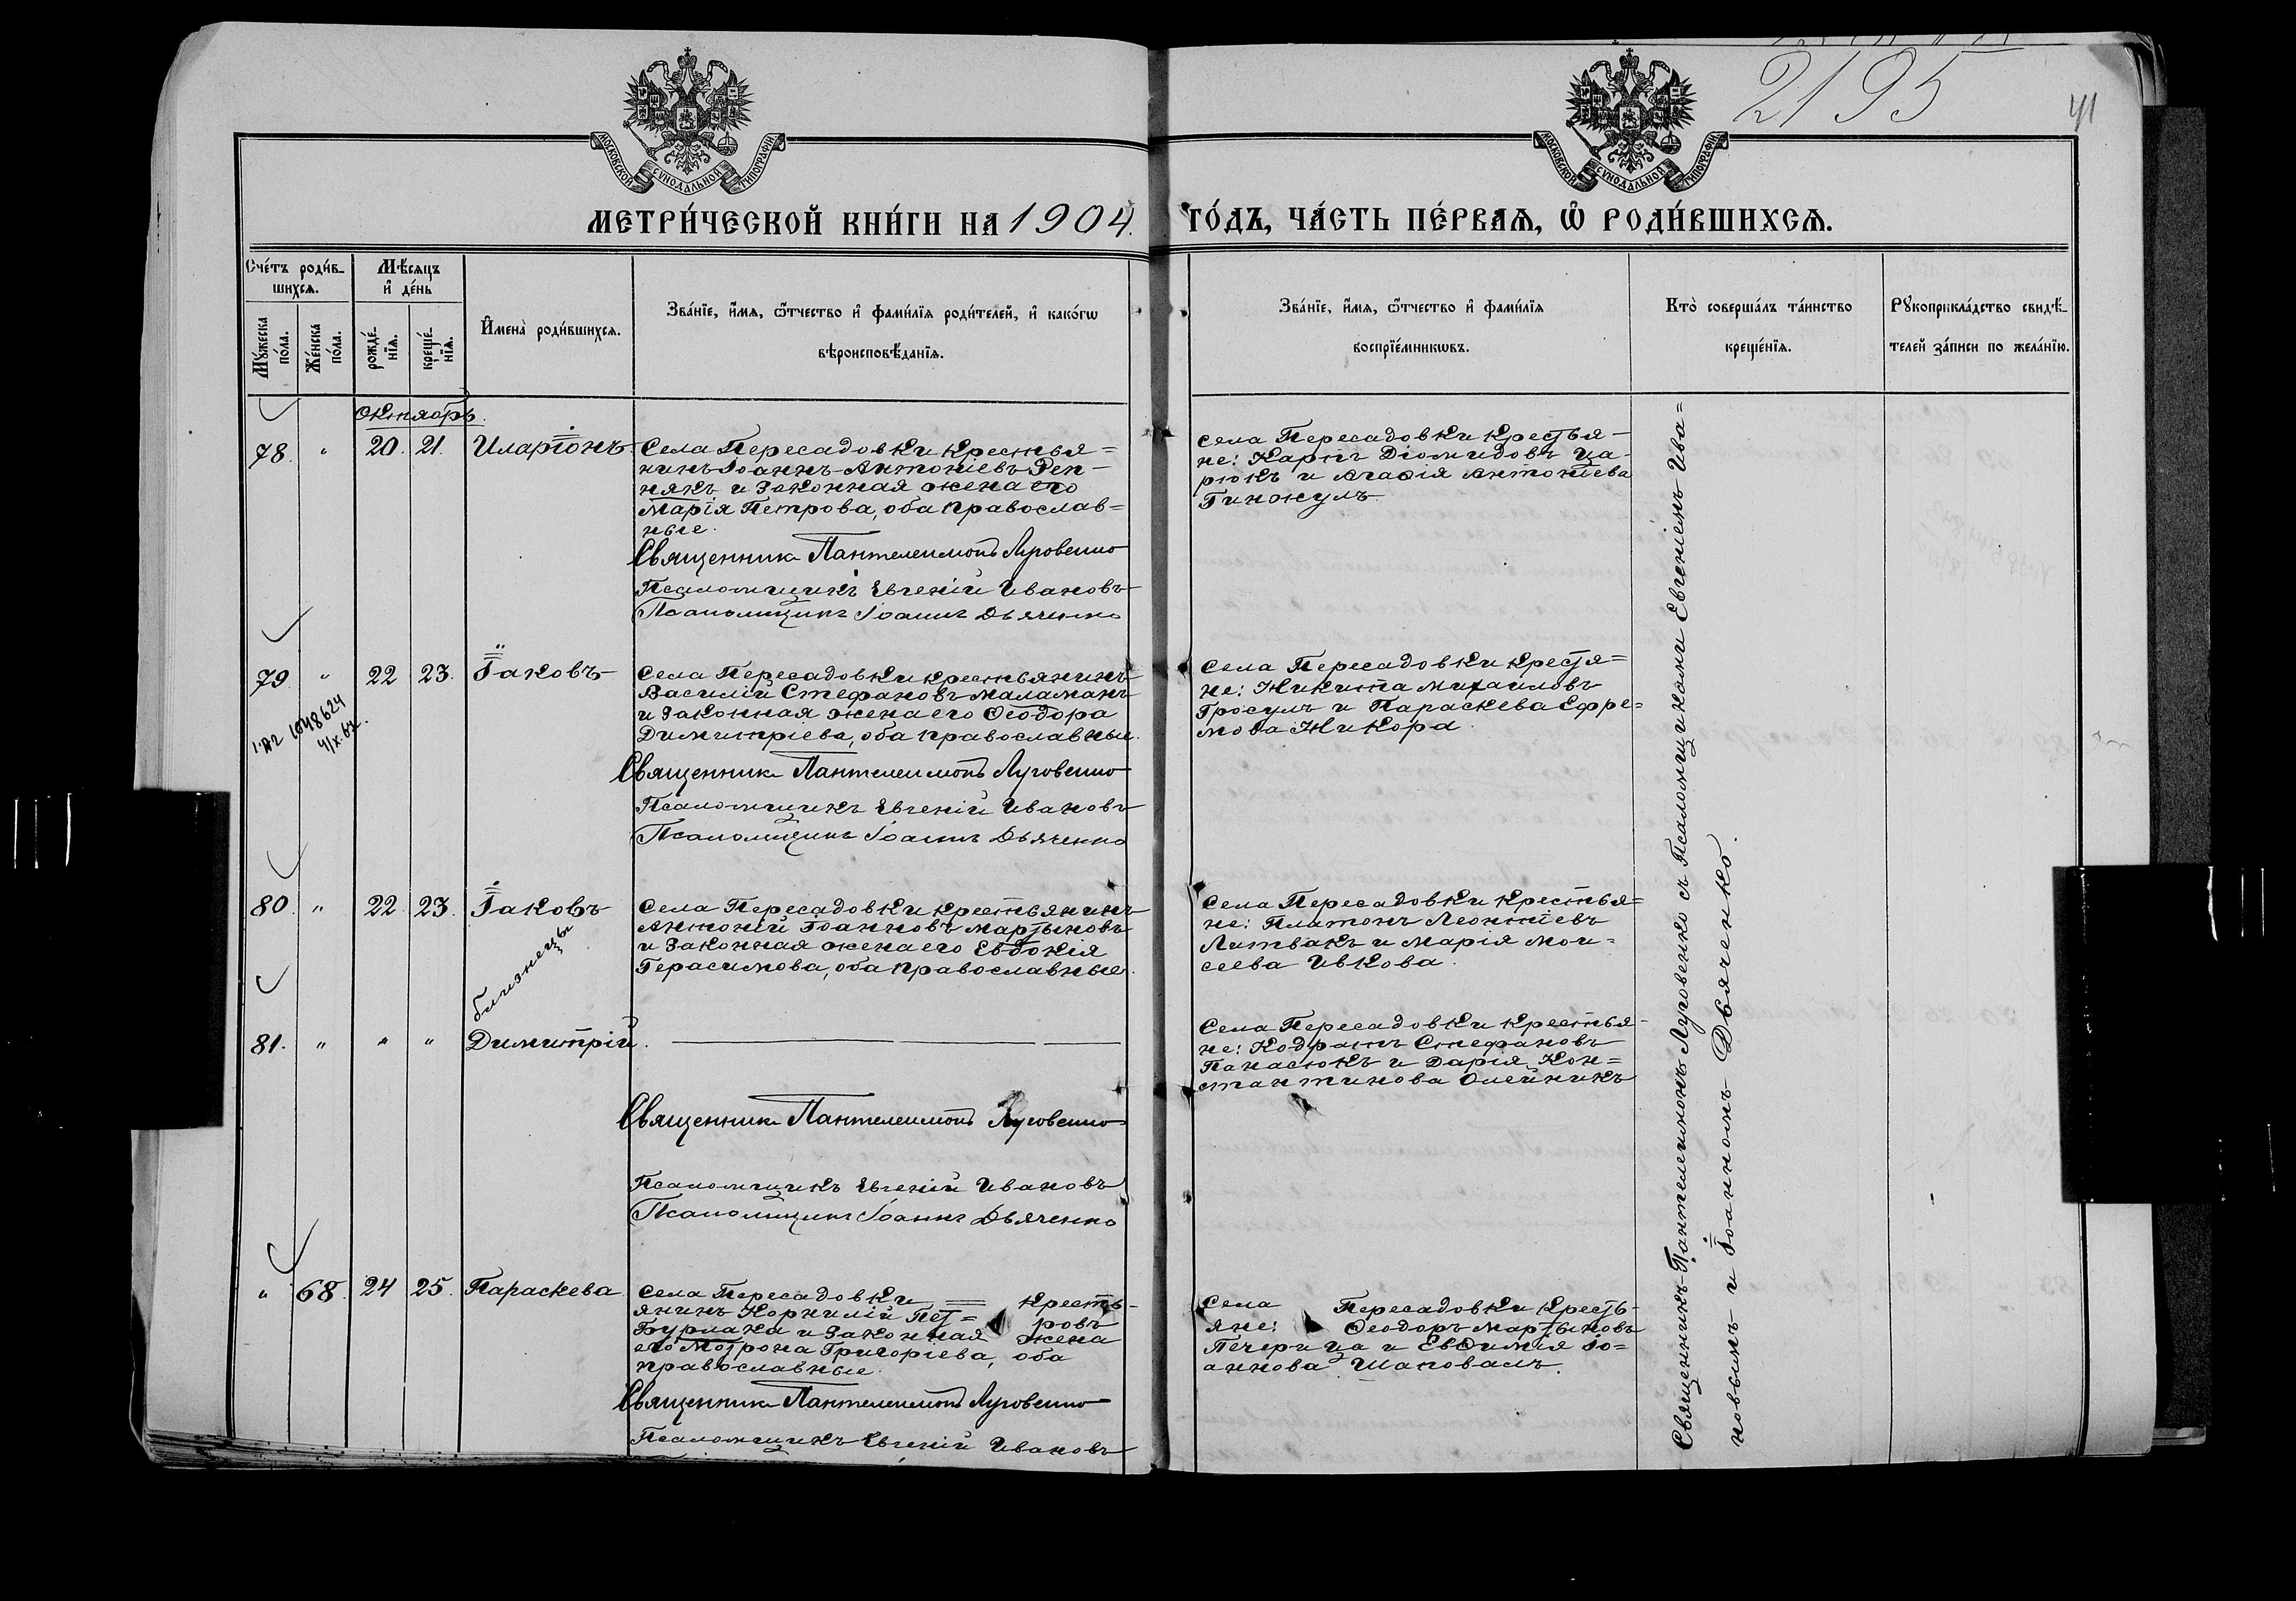 2195
41
МОСКОВСКОЙ СѴНОДАЛЬНОЙ ТИПОГРАФІИ
МОСКОВСКОЙ СѴНОДАЛЬНОЙ ТИПОГРАФІИ
МЕТРИ́ЧЕСКОЙ КНИ́ГИ НА 1904. ГО́ДЪ, ЧА́СТЬ ПЕ́РВАѦ, Ѽ РОДИ́ВШИХСѦ.
Сче́тъ роди́в-
шихсѧ.
Мꙋ́жеска
по́ла.
Же́нска
по́ла.
Мѣ́сѧцъ
и҆ де́нь
рожде́-
нїѧ.
креще́-
нїѧ.
И҆мена̀ роди́вшихсѧ.
Зва́нїе, и҆́мѧ, ѻ҆́тчество и҆ фами́лїѧ роди́телей, и҆ како́гѡ
вѣроисповѣ́данїѧ.
Зва́нїе, и҆́мѧ, ѻ҆́тчество и҆ фами́лїѧ
воспрїе́мникѡвъ.
Кто̀ соверша́лъ та́инство
креще́нїѧ.
Рꙋкоприкла́дство свидѣ́-
телей за́писи по жела́нїю.
Октябрь.
78. " 20. 21. Иларіонъ.
Села Пересадовки крестья=
нинъ Іоаннъ Антоніевъ Реп-
някъ и законная жена его
Марія Петрова, оба православ=
ные.
Священникъ Пантелеимонъ Луговенко
Псаломщикъ Евгеній Ивановъ
Псаломщикъ Іоаннъ Дьяченко
Села Пересадовки крестья-
не: Карпъ Діомидовъ Ца-
рюкъ и Агафія Антоніева
Гинжулъ.
79. " 22 23. Іаковъ
Села Пересадовки крестьянинъ
Василій Стефановъ Маламанъ
и законная жена его Ѳеодора
Димитріева, оба православные.
Священникъ Пантелеимонъ Луговенко
Псаломщикъ Евгеній Ивановъ
Псаломщикъ Іоаннъ Дьяченко
Села Пересадовки крестя=
не: Никита Михаиловъ
Гросулъ и Параскева Ефре=
мова Никора.
80. " 22 23. Іаковъ
близнецы
Села Пересадовки крестьянинъ
Антоній Іоанновъ Мартыновъ
и законная жена его Евдокія
Герасимова, оба православные.
Села Пересадовки крестья=
не: Платонъ Леонтіевъ
Литвакъ и Марія Мои=
сеева Ивкова.
81. " " " Димитрій.
Священникъ Пантелеимонъ Луговенко
Псаломщикъ Евгеній Ивановъ
Псаломщикъ Іоаннъ Дьяченко
Села Пересадовки крестья-
не: Кодратъ Стефановъ
Панасюкъ и Дарія Кон=
стантинова Олейникъ
" 68. 24 25. Параскева.
Села Пересадовки кресть-
янинъ Корнилій Пет= ровъ
Бурлака и законная жена
его Мотрона Григоріева, оба
православные.
Священникъ Пантелеимонъ Луговенко
Псаломщикъ Евгеній Ивановъ
Села Пересадовки кресть-
яне: Ѳеодоръ Мартыновъ
Печерица и Евфимія Іо=
аннова Шаповалъ.
Священникъ Пантелеимонъ Луговенко съ Псаломщиками Евгеніемъ Ива=
новымъ и Іоанномъ Дьяченко.